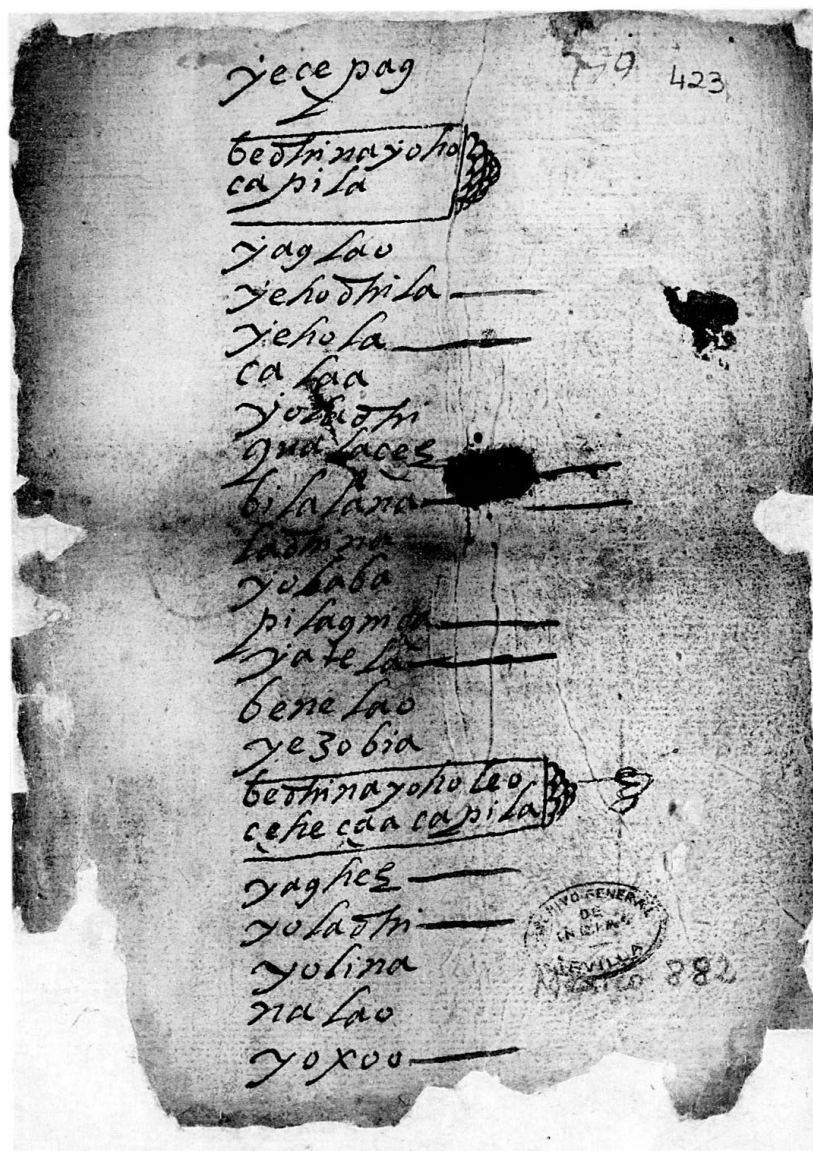 yece pag
423
bedhinayoho
capila
yaglao
yehodhila
yehola
ca laa
yoladhi
qualaçeg
bilalana
ladhina
yolaba
pilagnica
yatela
benelao
yezobia
bedhinayoholeo
çehe çaa capila
yagheg
yoladhi
yolina
nalao
yoxoo
ARCHIVO GENERAL
DE
INDIAS
SEVILLA
Mexico 882